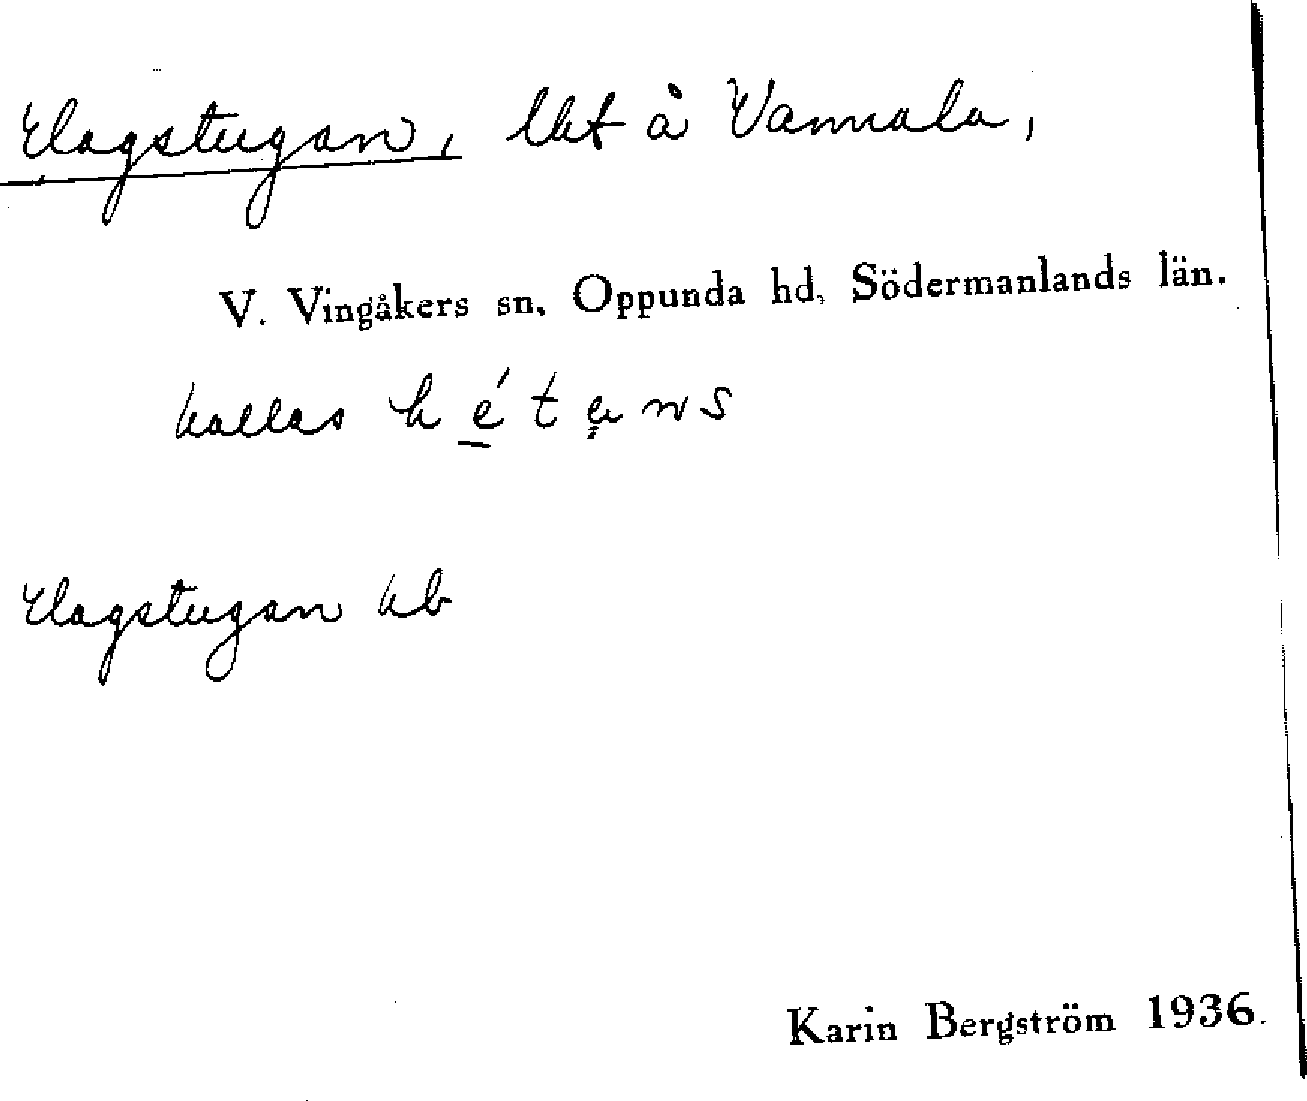 Hagstugan, lht å Vannala,
V. Vingåkers sn, Oppunda hd, Södermanlands län.
kallas
Hagstugan kb
Karin Bergström 1936.